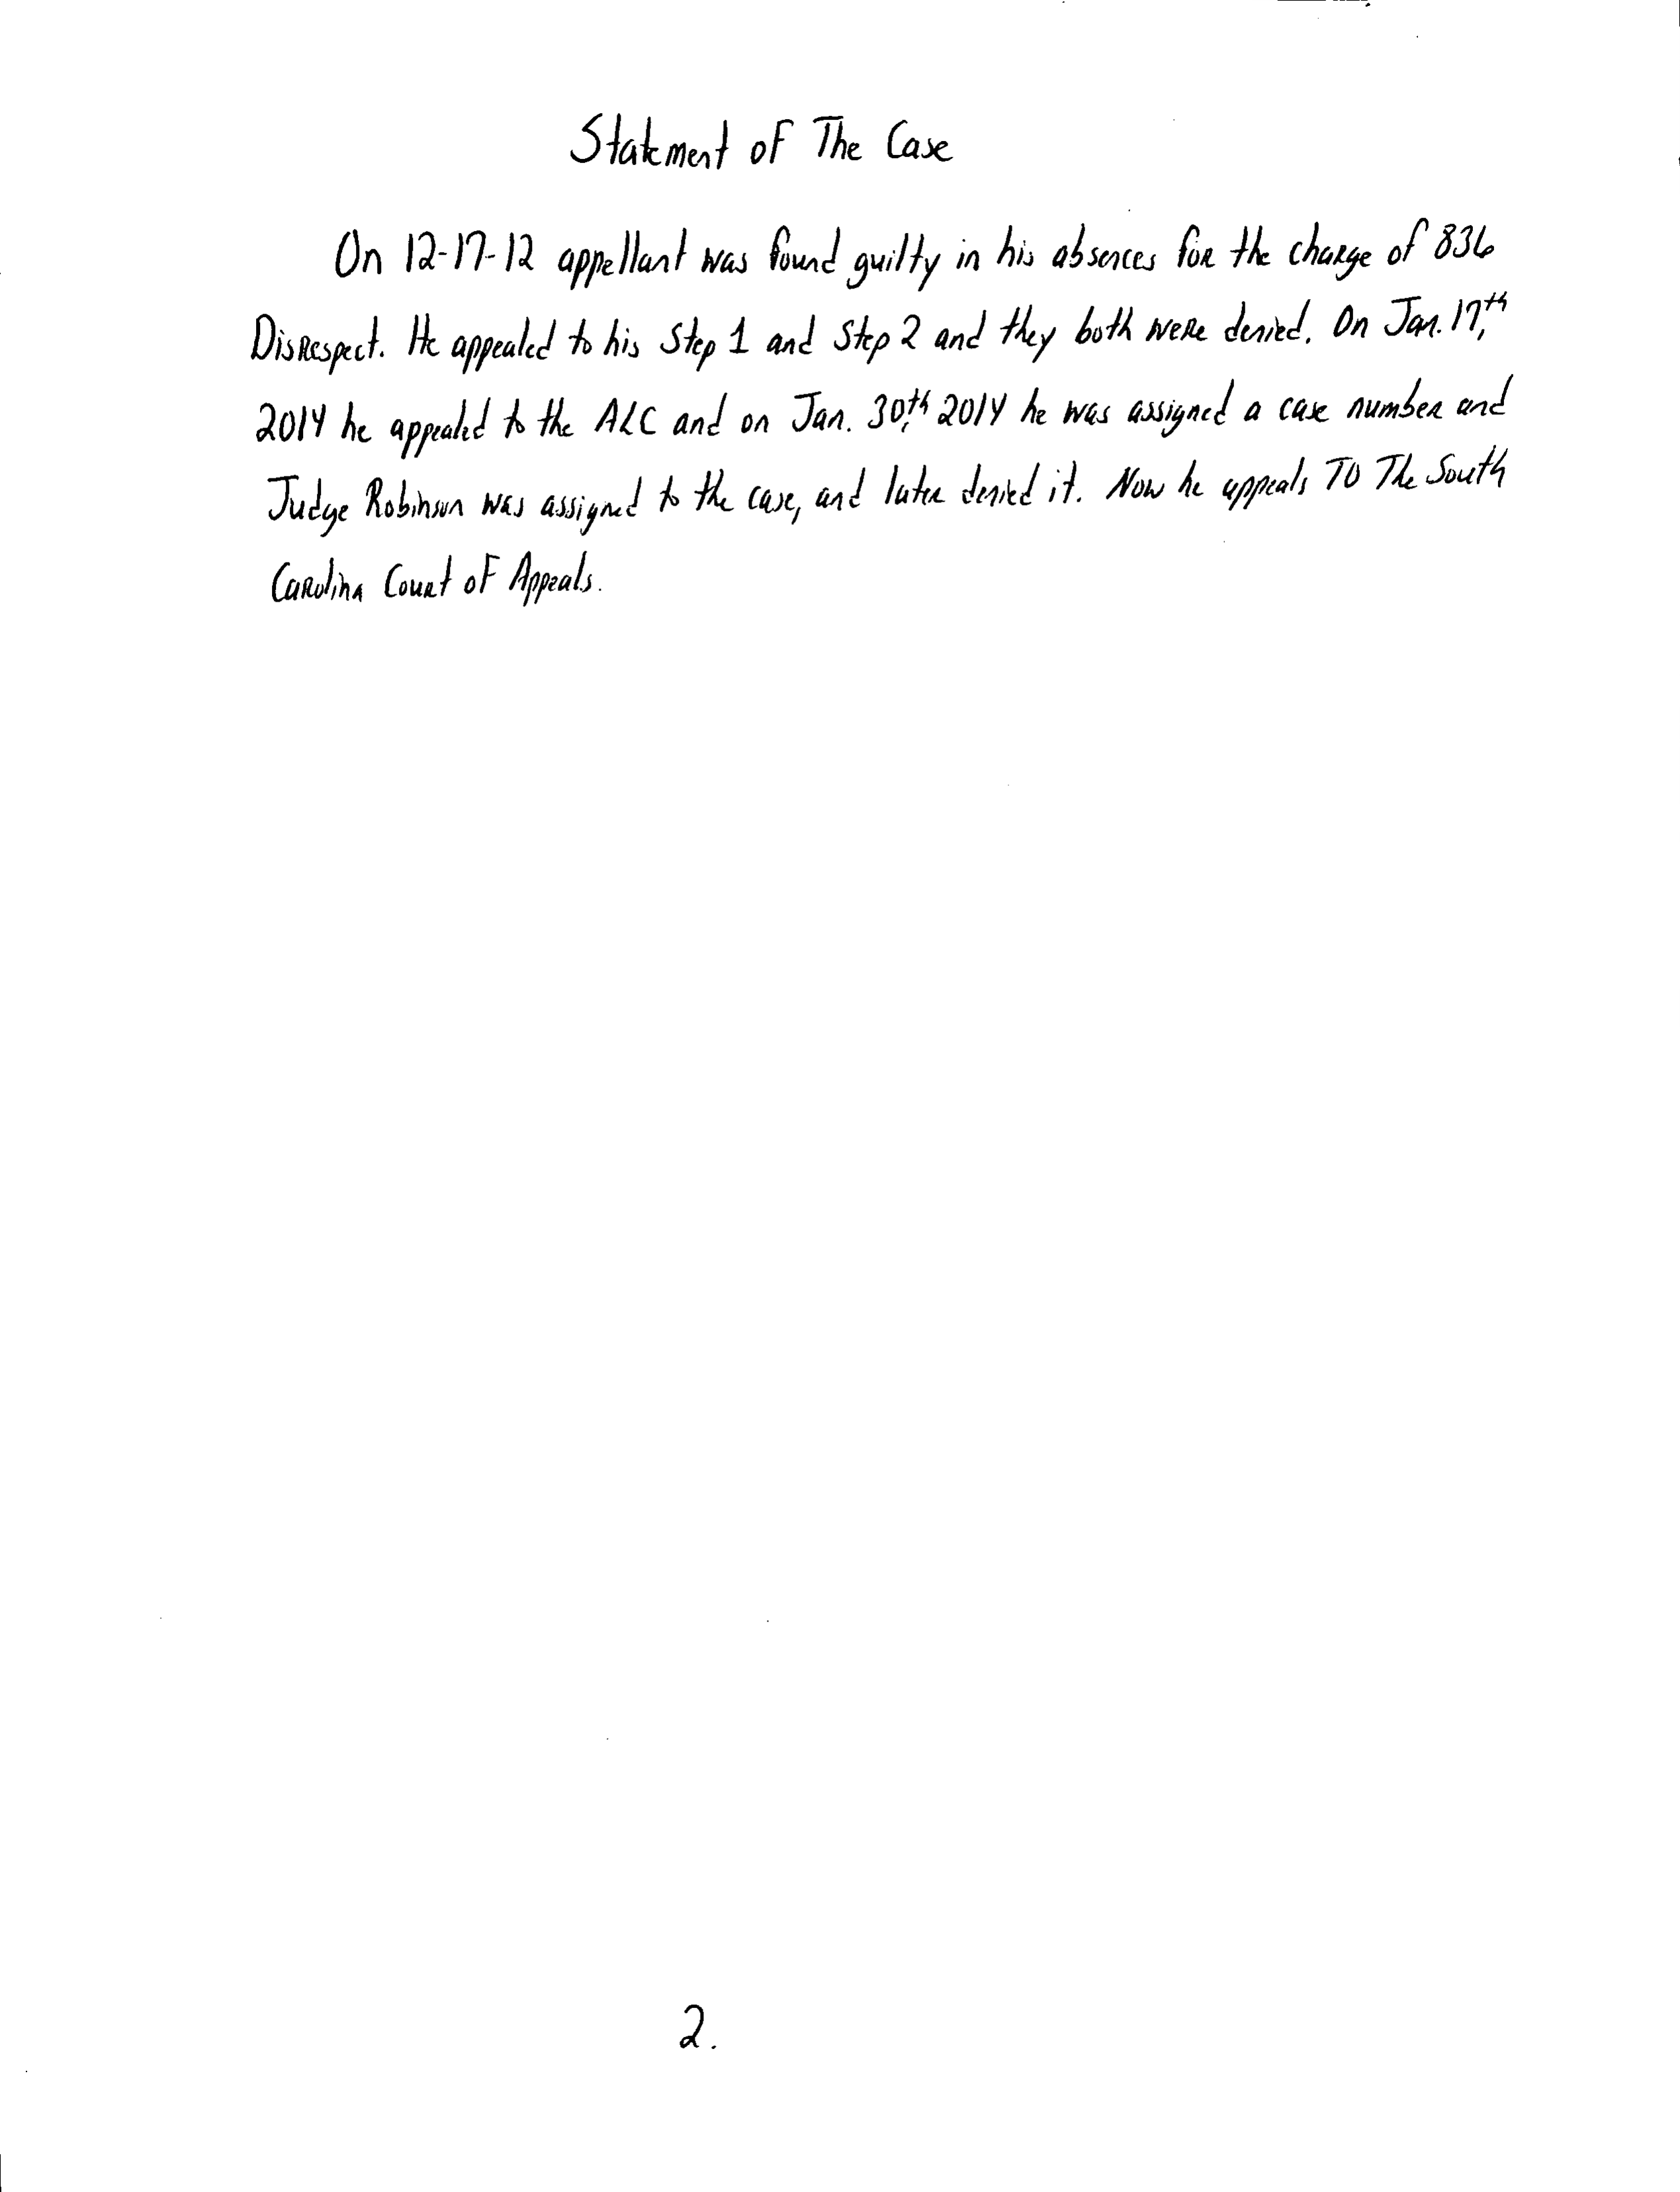 Statement of The Case
On 12-17-12 appellant was found guilty in his absences for the charge of 836
Disrespect. He appealed to his Step 1 and Step 2 and they both were denied. On Jan. 17,th
2014 he appealed to the ALC and on Jan. 30,th 2014 he was assigned a case number and
Judge Robinson was assigned to the case, and later denied it. Now he appeals TO The South
Carolina Court of Appeals.
2.